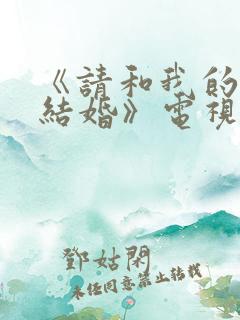 《請和我的
結婚》電視
鄧姑閑
未經同意禁止轉載